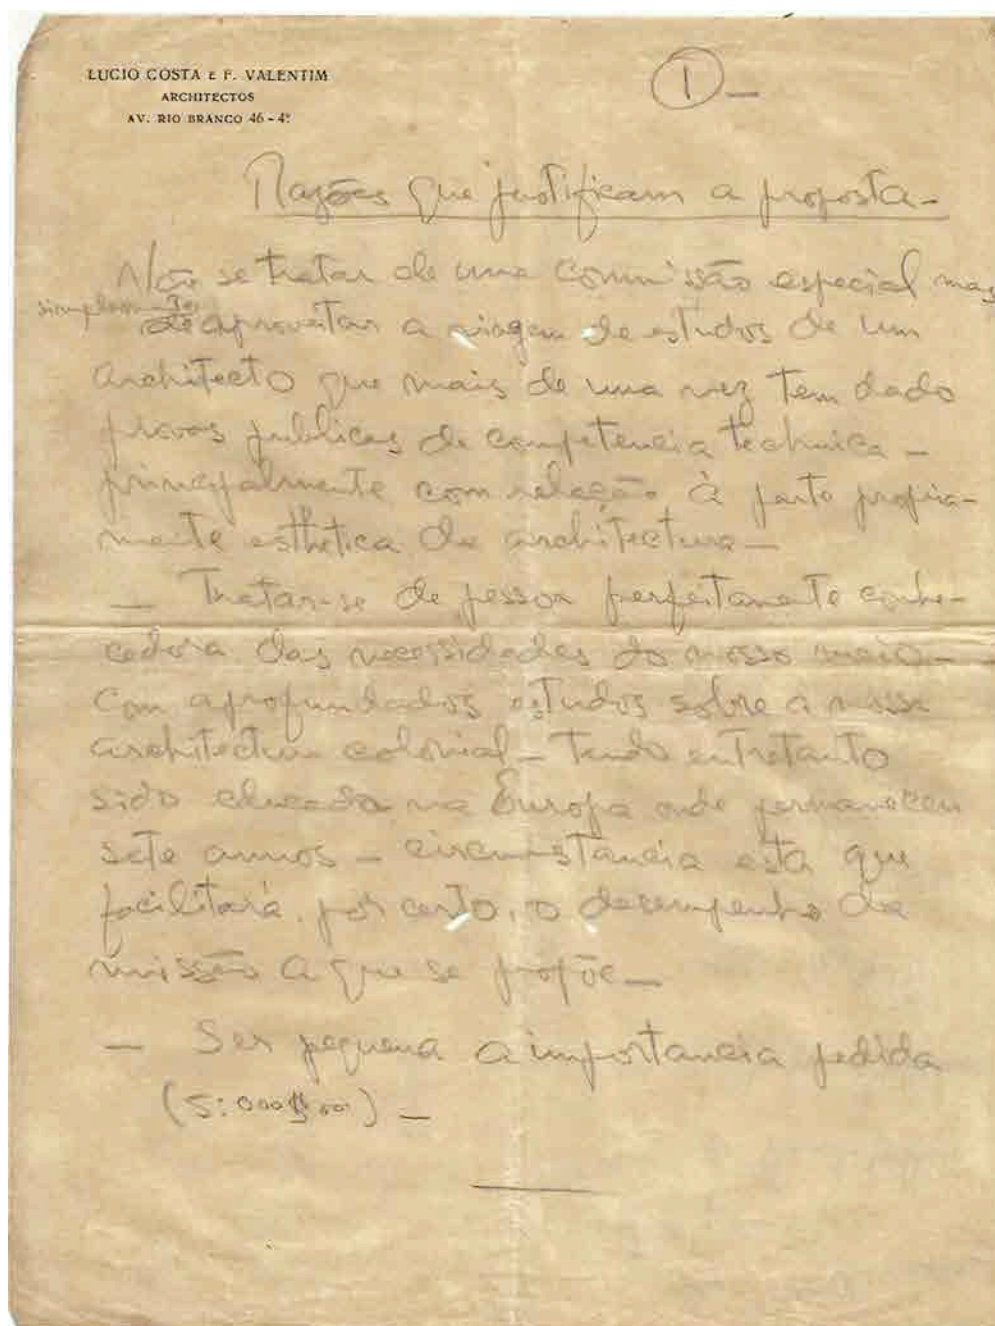 LUCIO COSTA E F. VALENTIM
ARCHITECTOS
AV. RIO BRANCO 46 - 4º
1 —
Razões que justificam a proposta —
Não se tratar de uma commissão especial mas
simplesmente
de aproveitar a viagem de estudos de um
architecto que mais de uma vez tem dado
provas publicas de competencia technica —
principalmente com relação à parte propria-
mente esthetica da architectura —
— Tratar-se de pessoa perfeitamente conhe-
cedora das necessidades do nosso meio —
com aprofundados estudos sobre a nossa
architectura colonial — tendo entretanto
sido educada na Europa onde permaneceu
sete annos — circumstancia esta que
facilitará, por certo, o desempenho da
missão a que se propõe —
— Ser pequena a importancia pedida
(5:000$000) —